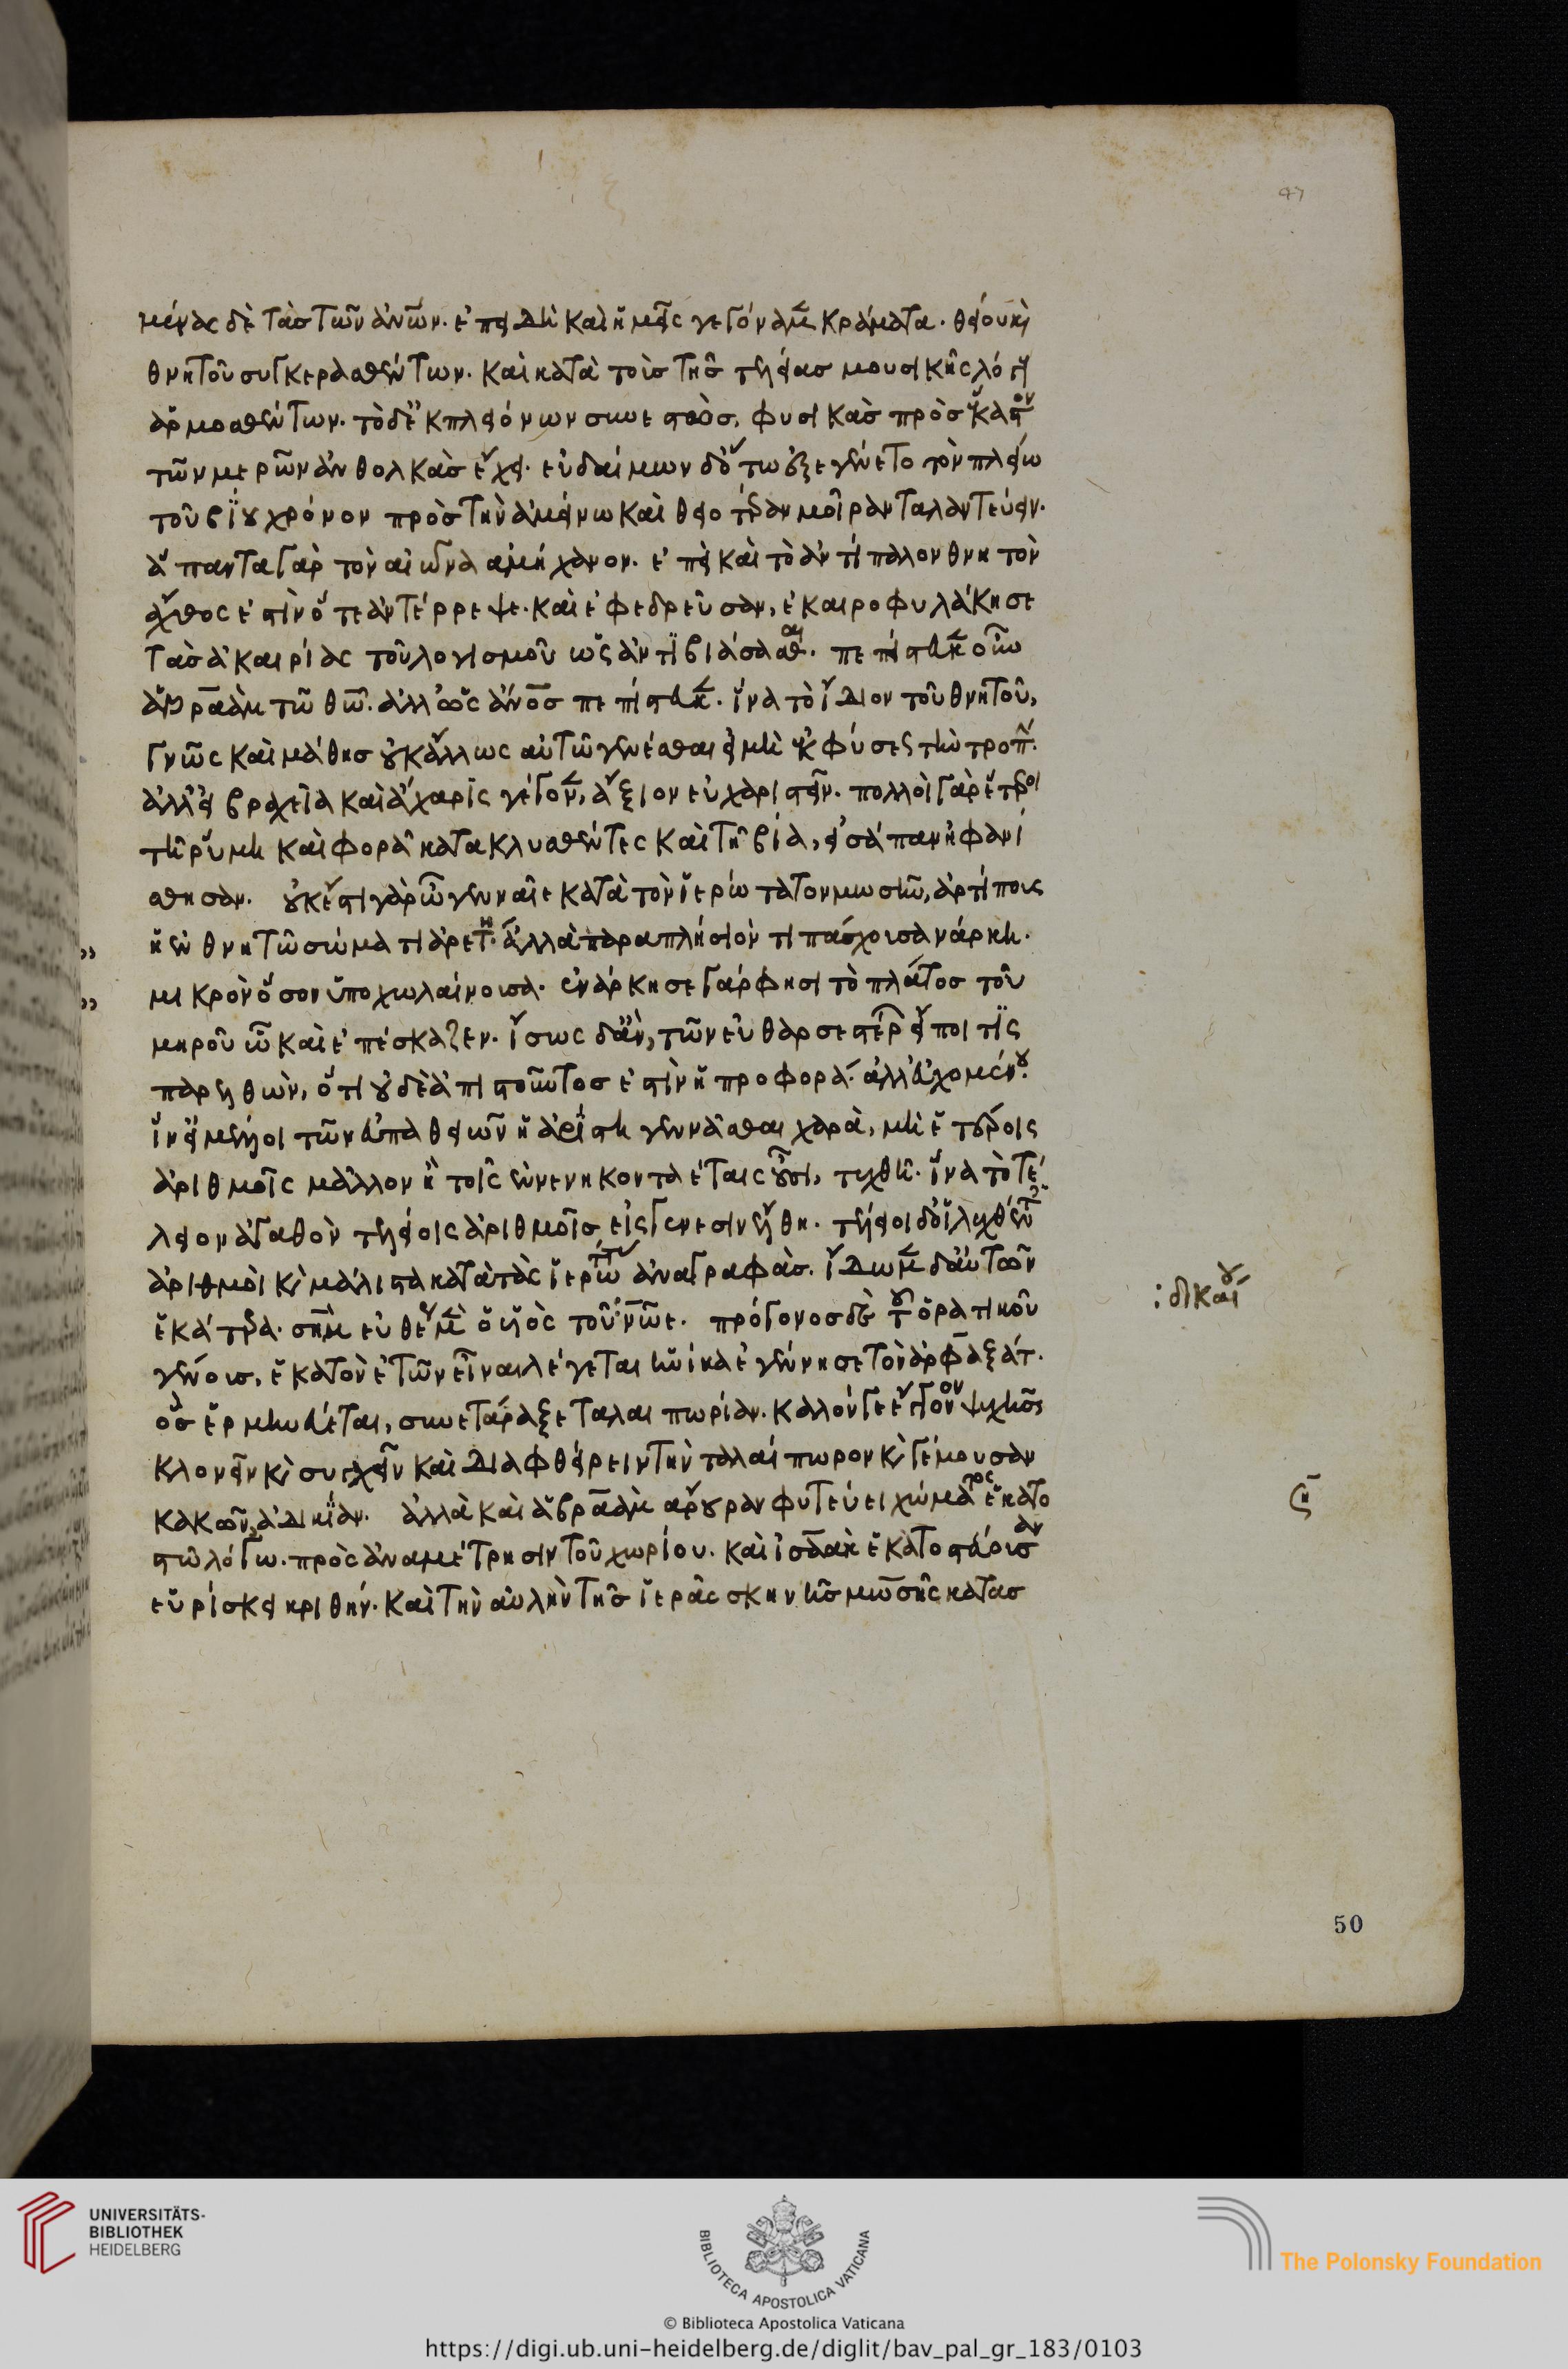 μένας δὲ τὰσ τῶν ἀν̅ων. ἐπειδὴ καὶ ἡμεῖς γεγόναμεν κράματα. θείου κὶ
θνητοῦ συγκερασθέντων. καὶ κατὰ τοὺσ τῆσ τελείασ μουσικῆς λόγους
ἁρμοσθέντων. τὸ δ' ἐκ πλειόνων συνεστὼσ, φυσικὰσ πρὸσ ἕκαστον
τῶν μερῶν ἀνθολκὰσ ἔχει. εὐδαίμων δ' ὅτω ἐξεγένετο τὸν πλείω
τοῦ βίου χρόνον πρὸσ τὴν ἀμείνω καὶ θειοτέραν μοῖραν ταλαντεύειν.
ἅπαντα γὰρ τὸν αἰῶνα ἀμήχανον. ἐπεὶ καὶ τὸ ἀντίπαλον θνητὸν
ἄχθος ἐστὶν ὅτε ἀντέρρεψε. καὶ ἐφεδρεῦσαν, ἐκαιροφυλάκησε
τὰσ ἀκαιρίας τοῦ λογισμοῦ ὡς ἀντιβιάσασθαι. πεπίστευκεν οὖν
ἀβραὰμ τῶ θω̅. ἀλλ' ὡς ἄνο̅σ πεπίστευκεν. ἵνα τὸ ἴδιον τοῦ θνητοῦ,
γνῶς καὶ μάθησ οὐκ ἄλλως αὐτῶ γενέσθαι εἰ μὴ ἐκ φύσεως τὴν τροπήν.
ἀλλ' εἰ βραχεῖα καὶ ἀχαρὶς γέγονεν, ἄξιον εὐχαριστεῖν. πολλοὶ γὰρ ἕτεροι
τῆ ῥύμη καὶ φορᾶ κατακλυσθέντες καὶ τῆ βία, εἰσάπαν ἠφανί
σθησαν. οὐκέτι γὰρ ὦ γενναῖε κατὰ τὸν ἱερώτατον μωσῆν, ἀρτίπους
ἡ ἐν θνητῶ σώματι ἀρετή. ἀλλὰ παραπλήσιόν τι πάσχουσα νάρκη.
μικρὸν ὅσον ὑποχωλαίνουσα. ἐνάρκησε γάρ φησι τὸ πλάτος τοῦ
μηροῦ ὧ καὶ ἐπέσκαζεν. ἴσως δ' ἂν, τῶν εὐθαρσεστέρων εἴποι τὶς
παρελθὼν, ὅτι οὐδὲ ἀπιστοῦντοσ ἐστὶν ἡ προφορά. ἀλλ' εὐχομένου.
ἵν' εἰ μέλλοι τῶν εὐπαθειῶν ἡ ἀρίστη γεννᾶσθαι χαρὰ, μὴ ἑτέροις
ἀριθμοῖς μᾶλλον ἢ τοῖς ἐνενηκονταέταις οὖσι, τεχθῆ. ἵνα τὸ τέ
λειον ἀγαθὸν τελείοις ἀριθμοῖσ εἰς γένεσιν ἔλθη. τέλειοι δ' οἱ λεχθέντες
ἀριθμοὶ κὶ μάλιστα κατὰ τὰς ἱερωτάτας ἀναγραφάσ. ἴδωμεν δ' αὐτῶν
ἑκάτερα. σὴμ εὐθέως μὲν ὁ υἱὸς τοῦ νῶε. πρόγονοσ δὲ τοῦ ὁρατικοῦ
γένουσ, ἑκατὸν ἐτῶν εἶναι λέγεται ἡνίκα ἐγέννησε τὸν ἀρφαξάτ.
ὃσ ἑρμηνεύεται, συνετάραξε ταλαιπωρίαν. καλόν γε ἔγγονον ψυχῆσ
κλονεῖν κὶ συγχεῖν καὶ διαφθείρειν τὴν ταλαίπωρον κὶ γέμουσαν
κακῶν, ἀδικίαν. ἀλλὰ καὶ ἀβραὰμ ἄρουραν φυτεύει χώματος ἑκατο
στῶ λόγω. πρὸς ἀναμέτρησιν τοῦ χωρίου. καὶ ἰσαὰκ ἑκατοστεύουσαν
εὑρίσκει κριθήν. καὶ τὴν αὐλὴν τῆσ ἱερᾶς σκηνῆσ μωσῆς κατασ
47
50
UNIVERSITÄTS-
BIBLIOTHEK
HEIDELBERG
BIBLIOTECA APOSTOLICA VATICANA
The Polonsky Foundation
© Biblioteca Apostolica Vaticana
https://digi.ub.uni-heidelberg.de/diglit/bav_pal_gr_183/0103